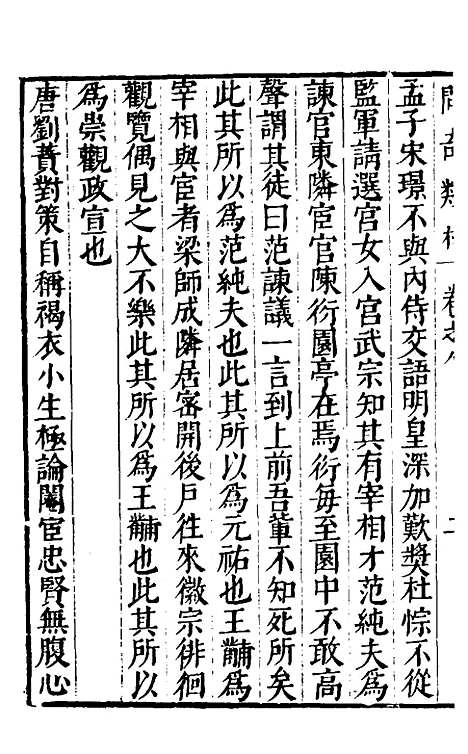 孟子宋璟不與內侍交語明皇深加歎奬杜悰不從
監軍請選官女入宮武宗知其有宰相才范純夫爲
諫官東隣宦官陳衍園亭在焉衍每至園中不敢高
聲謂其徒曰范諫議一言到上前吾輩不知死所矣
此其所以爲范純夫也此其所以爲元祐也王黼爲
宰相與宦者梁師成隣居密開後戶徃來徽宗徘徊
觀覽偶見之大不樂此其所以爲王黼也此其所以
爲崇觀政宣也
唐劉蕡對策自稱褐衣小生極論閹宦忠賢無腹心